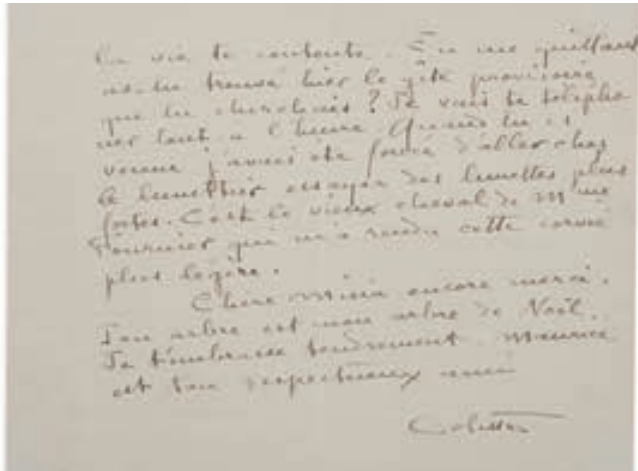 la vie te contente. En me quittant
as-tu trouvé hier le gîte provisoire
que tu cherchais ? Je vais te télépho
ner tout à l'heure Quand tu es
venue j'avais été forcé d'aller chez
le lunettier essayer des lunettes plus
fortes. C'est le vieux cheval de Mme
Fournier qui m'a rendu cette corvée
plus légère.
Chère encore merci.
Ton arbre est mon arbre de Noël.
Je t'embrasse tendrement. Maurice
est ton respectueux ami
Colette